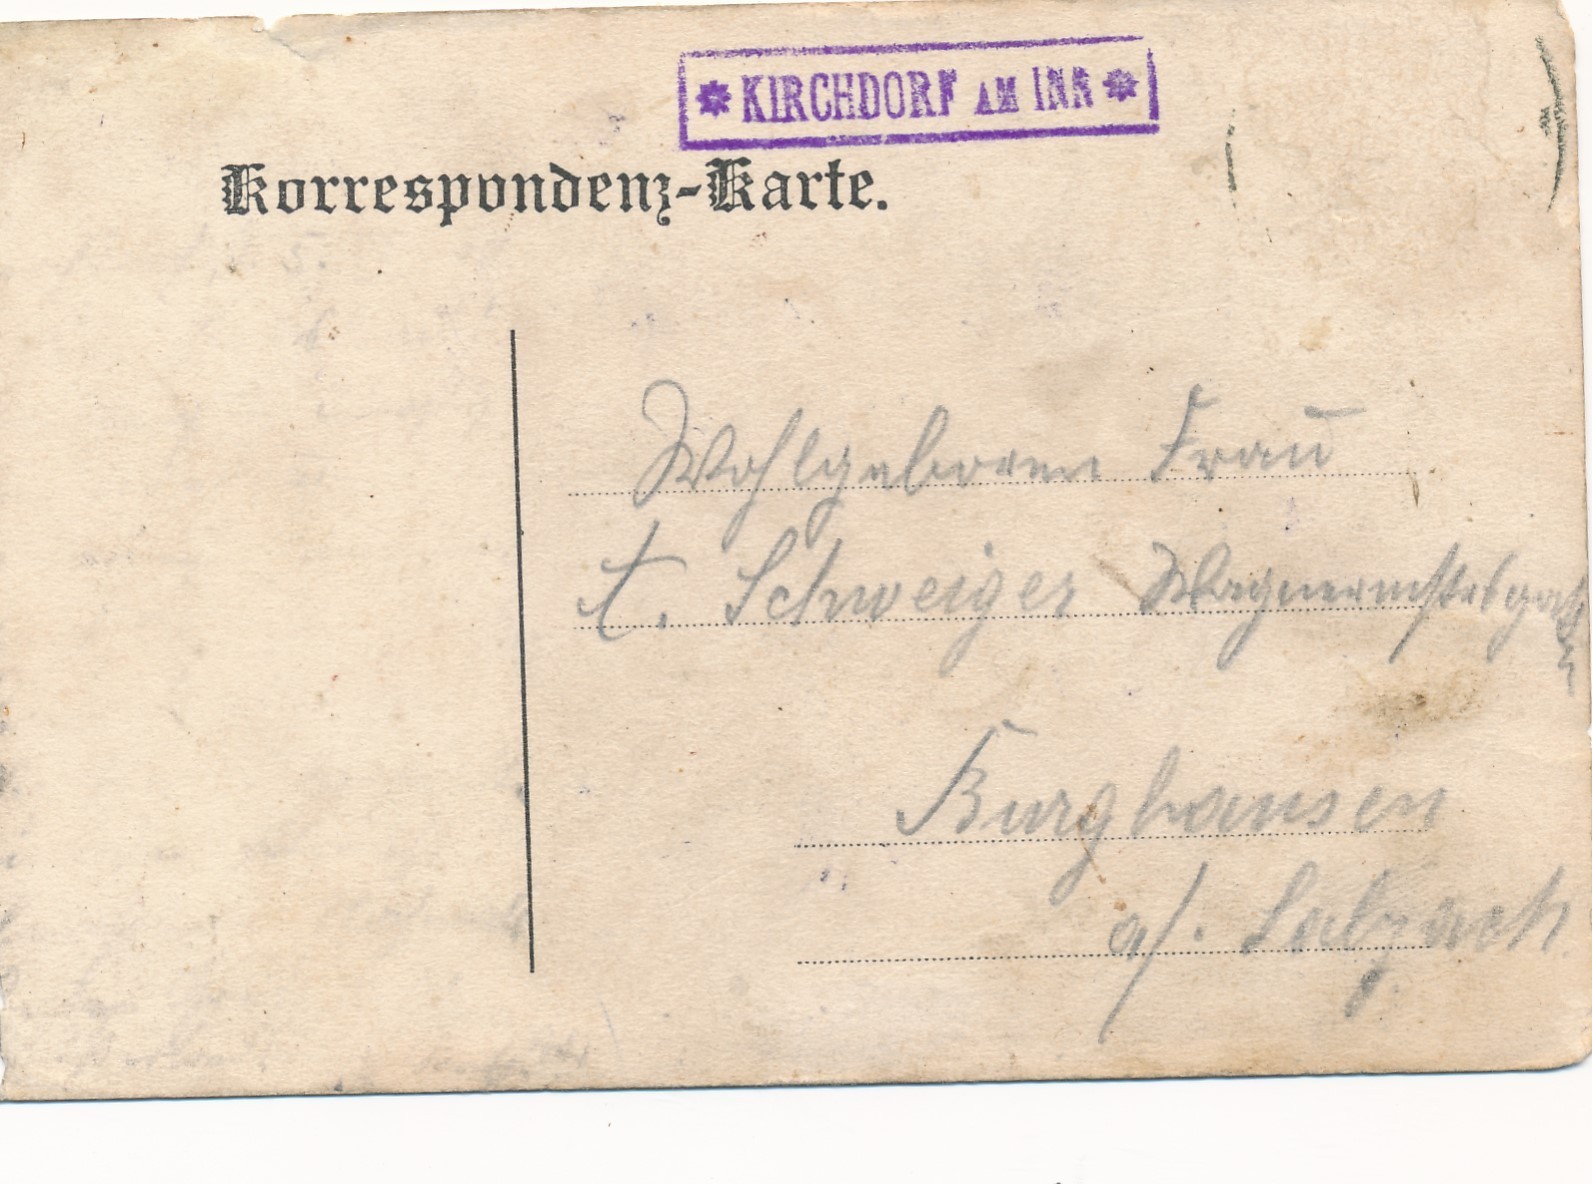 * KIRCHDORF AM INN *
Korrespondenz-Karte.
Wohlgeboren Frau
t. Schweiger
Burghausen
a/. Salzach.